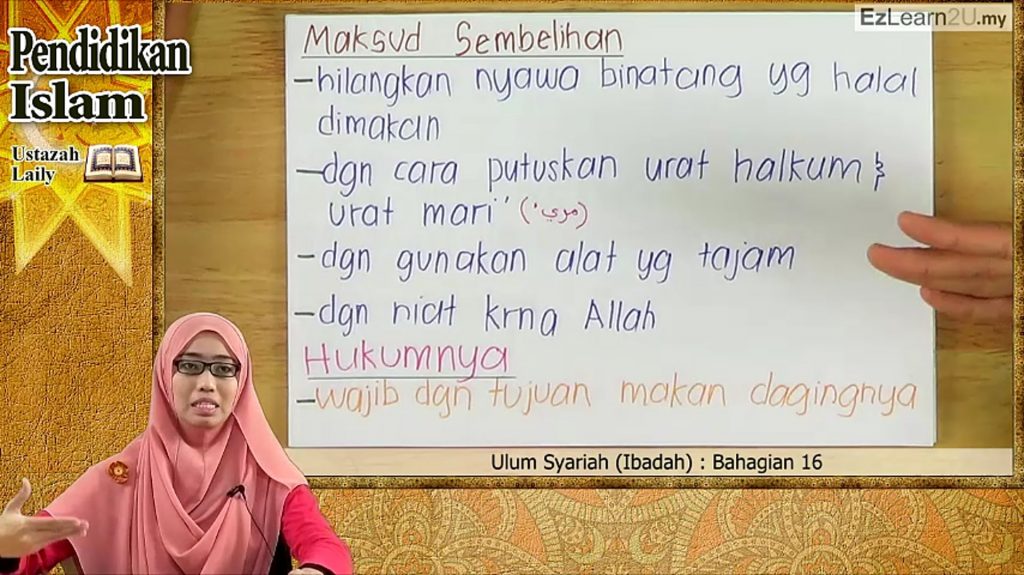 EzLearn2U.my
Pendidikan
Islam
Ustazah
Laily
Maksud Sembelihan
-hilangkan nyawa binatang yg halal
dimakan
-dgn cara putuskan urat halkum &
urat mari' (مريء)
-dgn gunakan alat yg tajam
-dgn niat krna Allah
Hukumnya
-wajib dgn tujuan makan dagingnya
Ulum Syariah (Ibadah) : Bahagian 16